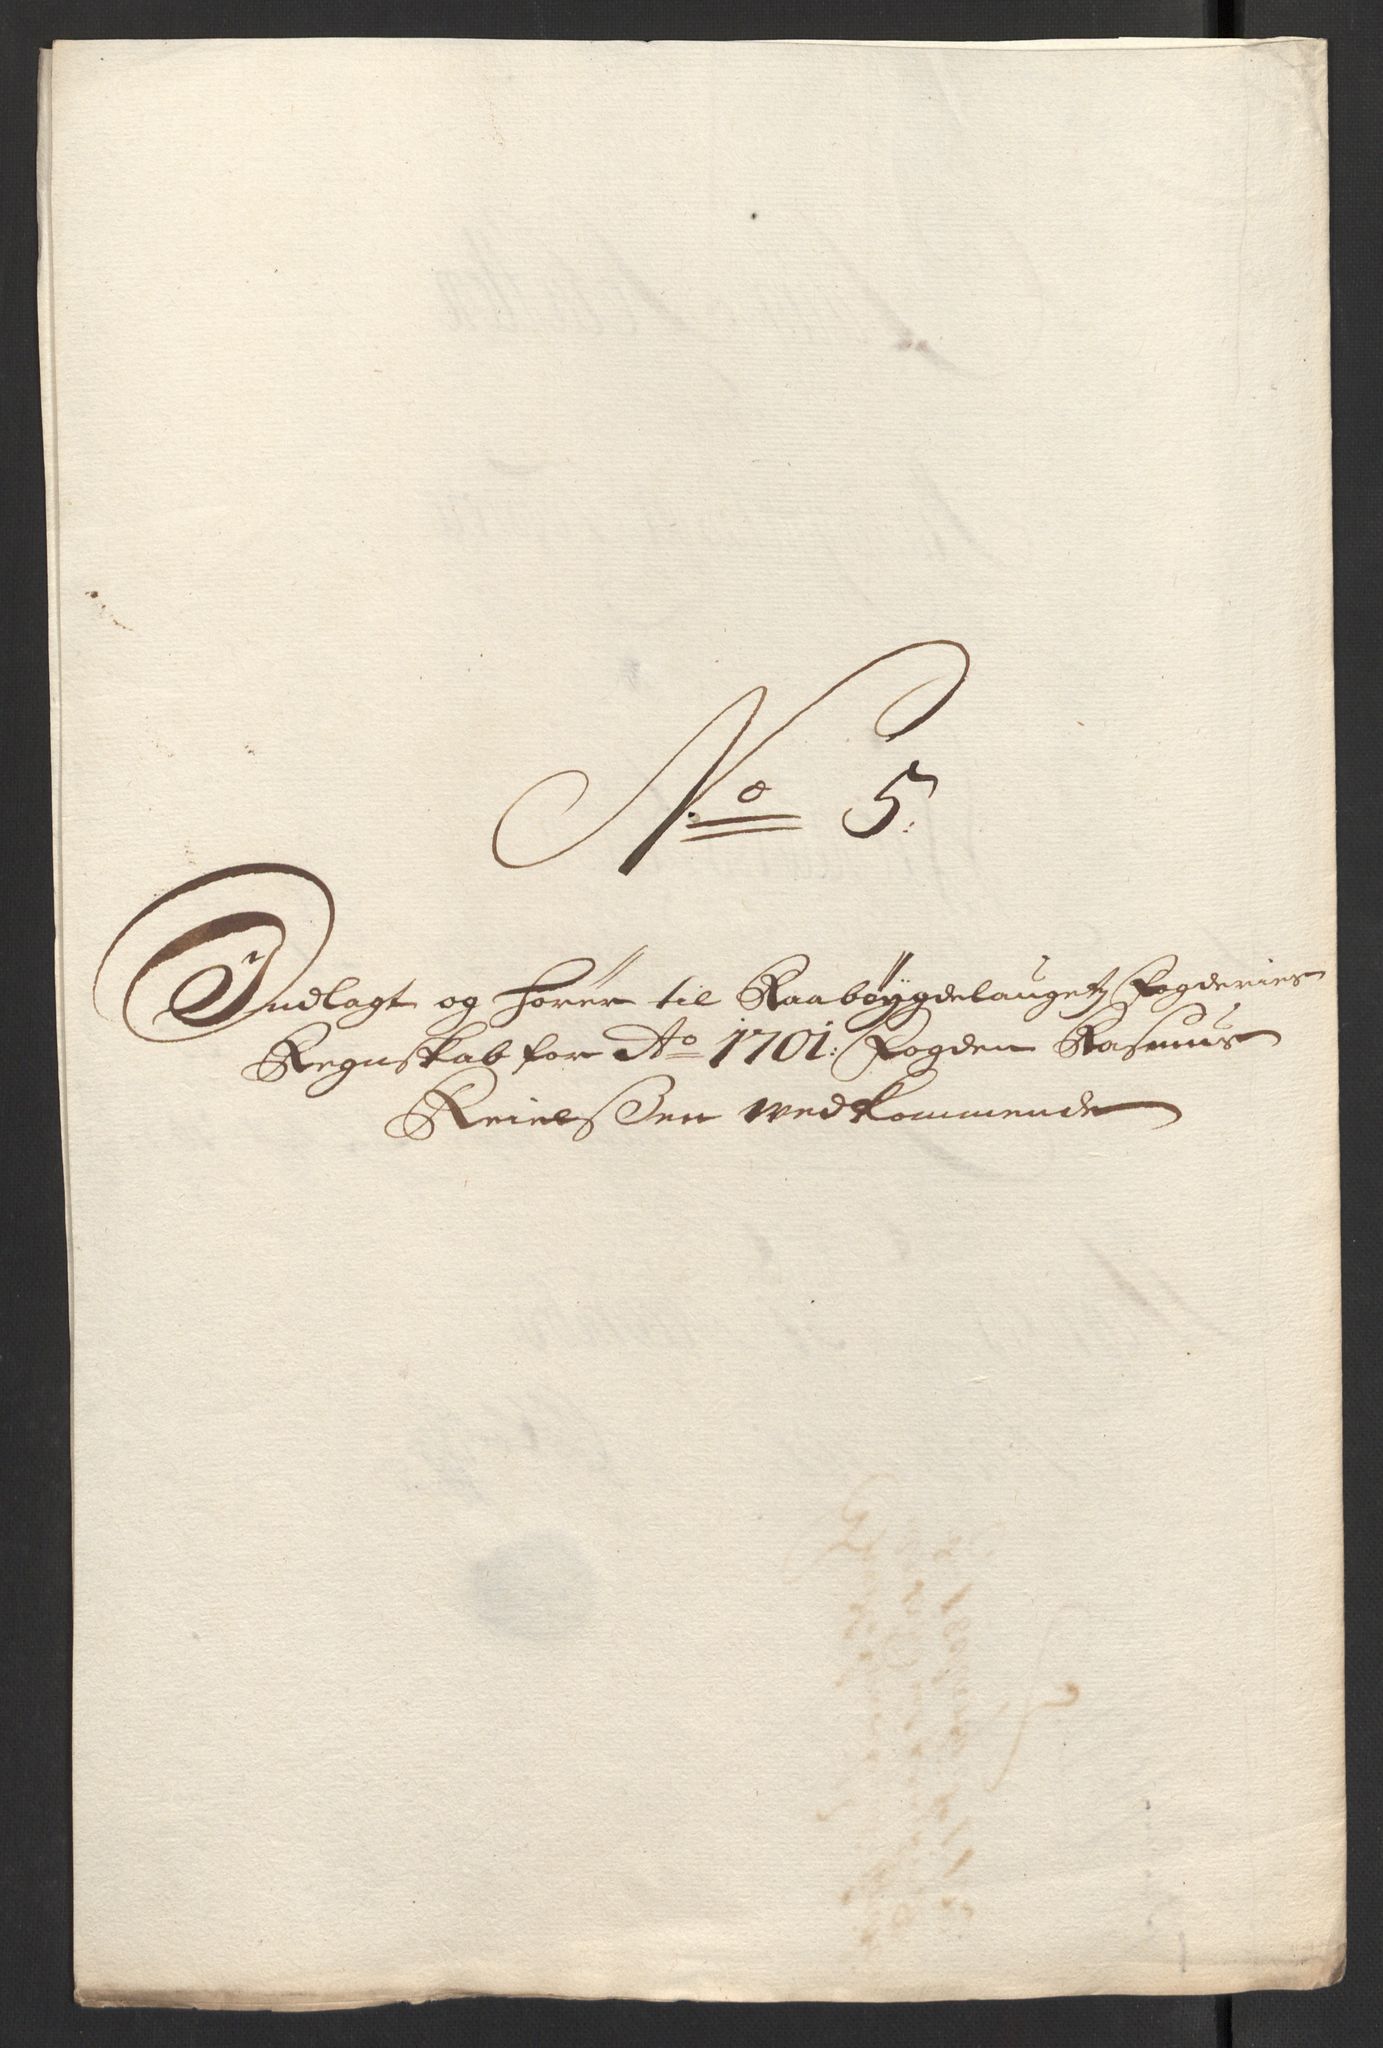 No 5:
Indlagt og hörer til Raabÿgdelaugetz Fogderies
Regnskab for Ao 1701: Fogden Rasmus
Keielssen wedkommende